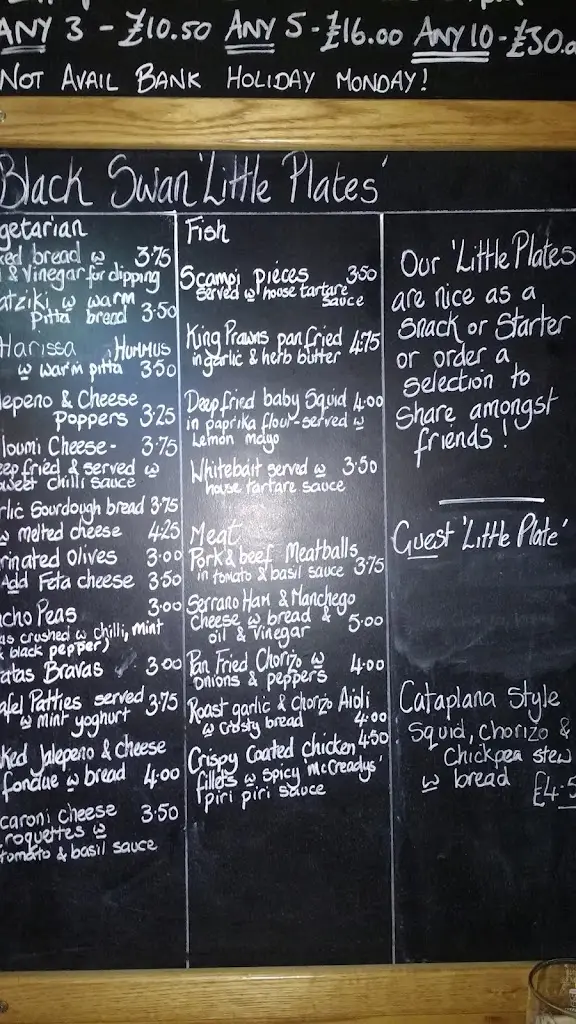 ANY 3 - £10.50 ANY 5 - £16.00 ANY 10 - £30.0
NOT AVAIL BANK HOLIDAY MONDAY!
Black Swan 'Little Plates'
getarian
ked bread w 3.75
& Vinegar for dipping
atziki w warm
pitta bread 3.50
Harissa Hummus
w warm pitta 3.50
lepeno & Cheese
Poppers 3.25
loumi Cheese- 3.75
eep fried & served w
weet chilli sauce
rlic Sourdough bread 3.75
w melted cheese 4.25
rinated Olives 3.00
Add Feta cheese 3.50
cho Peas 3.00
as crushed w chilli, mint
& black pepper)
atas Bravas 3.00
afel Patties served 3.75
w Mint yoghurt
ked Jalepeno & cheese
fondue w bread 4.00
caroni cheese 3.50
roquettes w
tomato & basil sauce
Fish
Scampi pieces 3.50
served w house tartare
sauce
King Prawns pan fried 4.75
in garlic & herb butter
Deep fried baby Squid 4.00
in paprika flour-served w
Lemon mayo
Whitebait served w 3.50
house tartare sauce
Meat
Pork & beef Meatballs
in tomato & basil sauce 3.75
Serrano Ham & Manchego
Cheese w bread & 5.00
oil & Vinegar
Pan Fried Chorizo w 4.00
onions & peppers
Roast garlic & chorizo Aioli
w Crosty bread 4.00
Crispy Coated chicken 4.50
fillets w spicy 'McCreadys'
piri piri sauce
Our 'Little Plates
are nice as a
Snack or Starter
or order a
selection to
Share amongst
friends!
Guest 'Little Plate'
Cataplana Style
Squid, chorizo &
Chickpea stew
w bread
£4.5